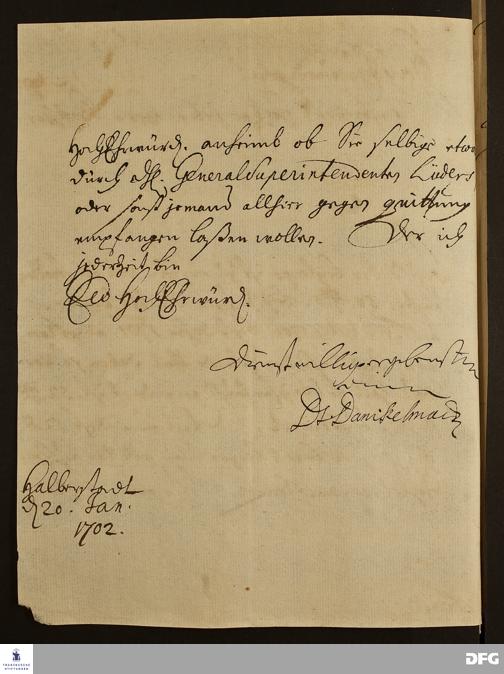 HochEhrwürd. anheimb ob Sie selbige etwa
durch H. GeneralSuperintendenten Lüders
oder sonst jemand allhier gegen quittung
empfangen laßen wollen. Der ich
jederzeit bin
Ew HochEhrwürd.
dienstwilligergebenster
Danckelman
Halberstadt
d 20. Jan.
1702.
FRANCKESCHE
STIFTUNGEN
DFG